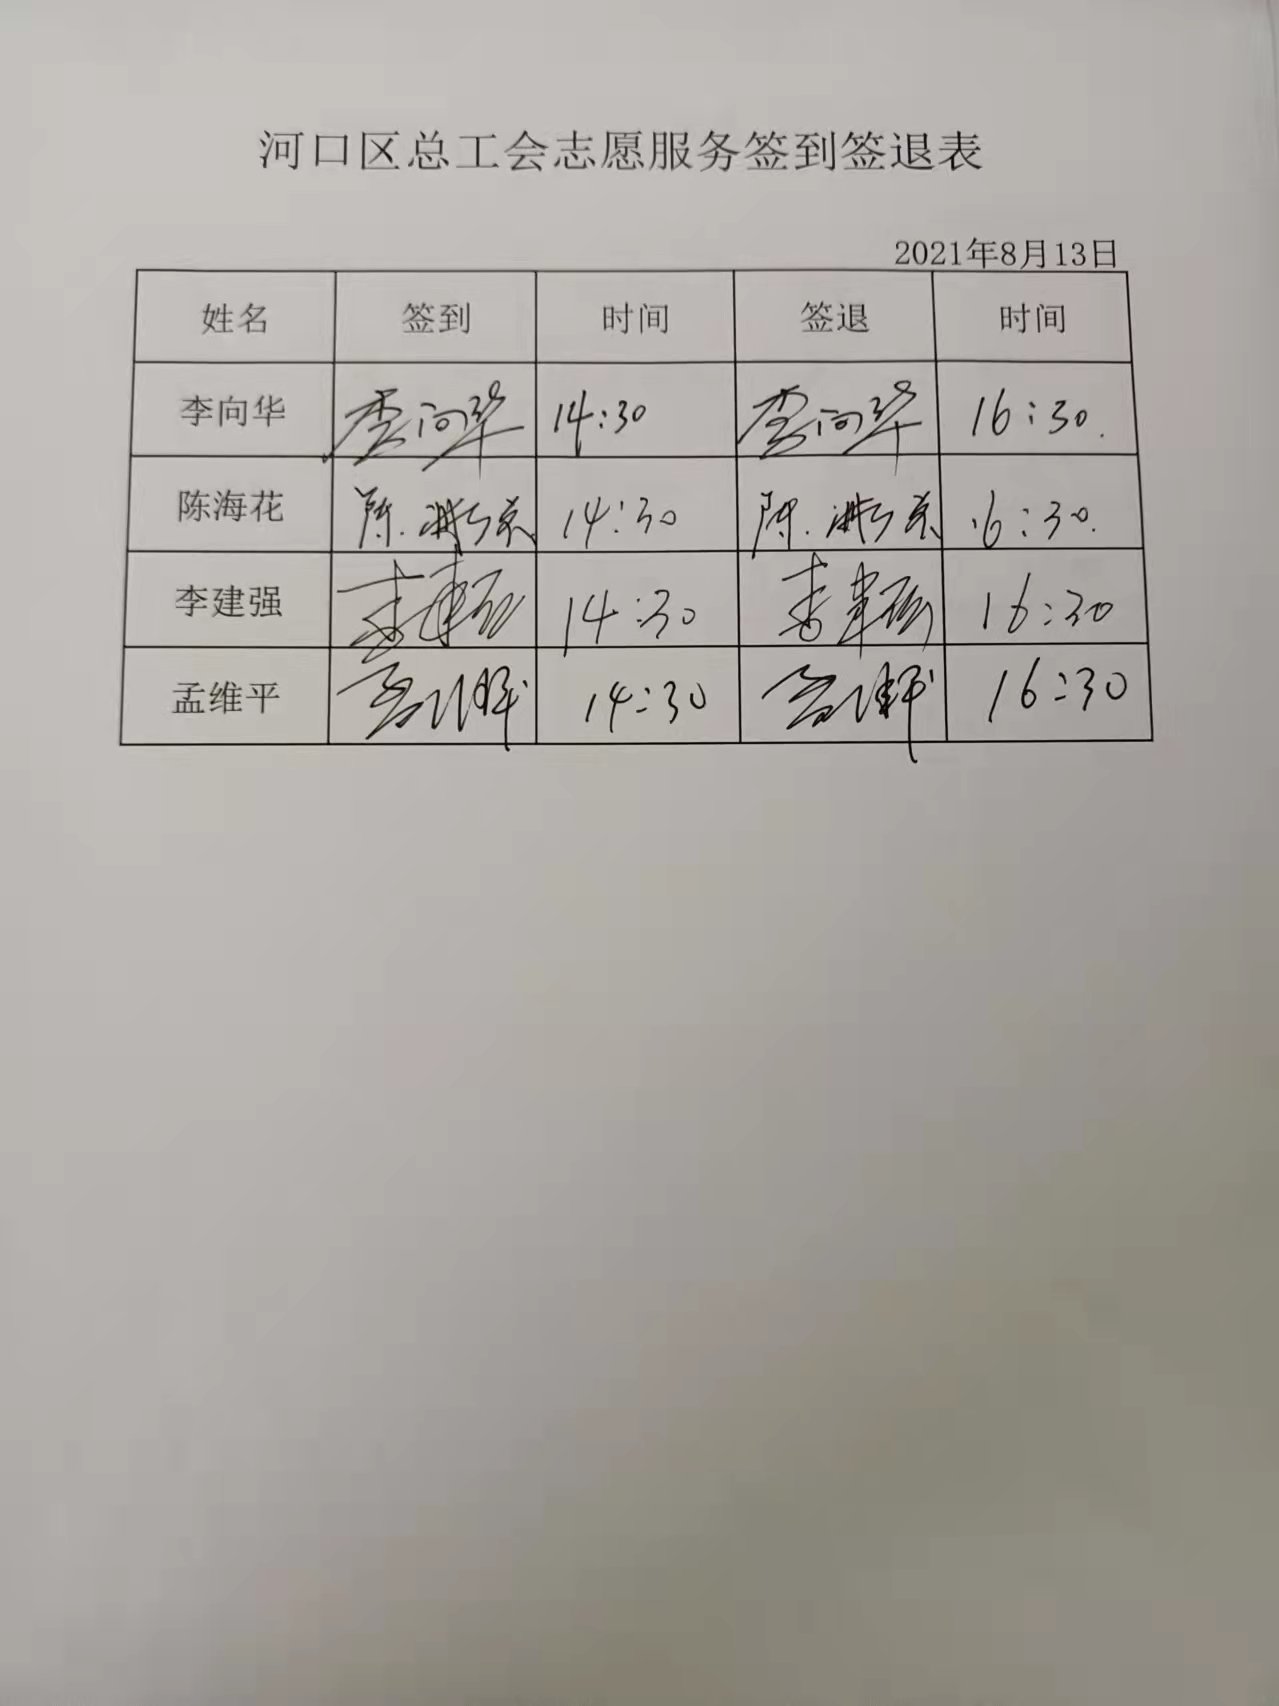 河口区总工会志愿服务签到签退表
2021年8月13日
姓名 签到 时间 签退 时间
李向华 李向华 14:30 李向华 16:30.
陈海花 陈海花 14:30 陈海花 16:30.
李建强 李建强 14:30 李建强 16:30
孟维平 孟维平 14:30 孟维平 16:30